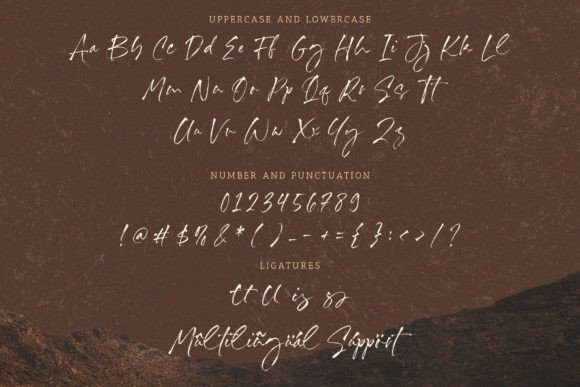 UPPERCASE AND LOWERCASE
Aa Bb Cc Dd Ee Ff Gg Hh Ii Jj Kk Ll
Mm Nn Oo Pp Qq Rr Ss Tt
Uu Vv Ww Xx Yy Zz
NUMBER AND PUNCTUATION
0123456789
!@#$%&*()_-+={}:<>/?
LIGATURES
tt ll is ss
Mûltilingúál Sûppört